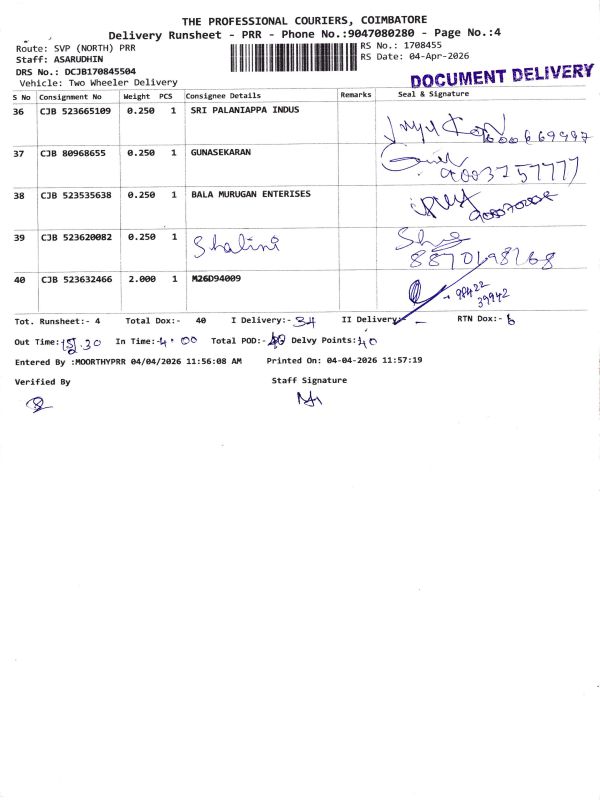 THE PROFESSIONAL COURIERS, COIMBATORE
Delivery Runsheet - PRR - Phone No.:9047080280 - Page No.:4
Route: SVP (NORTH) PRR
RS No.: 1708455
Staff: ASARUDHIN
RS Date: 04-Apr-2026
DRS No.: DCJB170845504
Vehicle: Two Wheeler Delivery
DOCUMENT DELIVERY
S No Consignment No Weight PCS Consignee Details Remarks Seal & Signature
36 CJB 523665109 0.250 1 SRI PALANIAPPA INDUS
37 CJB 80968655 0.250 1 GUNASEKARAN
9003757777
38 CJB 523535638 0.250 1 BALA MURUGAN ENTERISES
39 CJB 523620082 0.250 1 Shalini
8870198268
40 CJB 523632466 2.000 1 M26D94009
98422
39942
Tot. Runsheet:- 4 Total Dox:- 40 I Delivery:- 34 II Delivery:- RTN Dox:- 6
Out Time: In Time:-4.00 Total POD:- Delvy Points:40
Entered By :MOORTHYPRR 04/04/2026 11:56:08 AM Printed On: 04-04-2026 11:57:19
Verified By Staff Signature